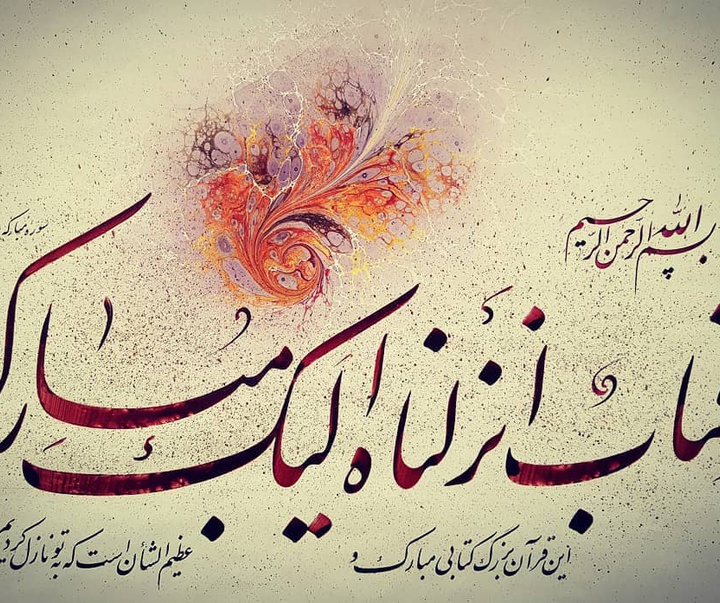 بسم الله الرحمن الرحیم
سوره مبارکه
کتاب انزلناه الیک مبارک
این قرآن بزرگ کتابی مبارک و عظیم الشأن است که به تو نازل کردیم